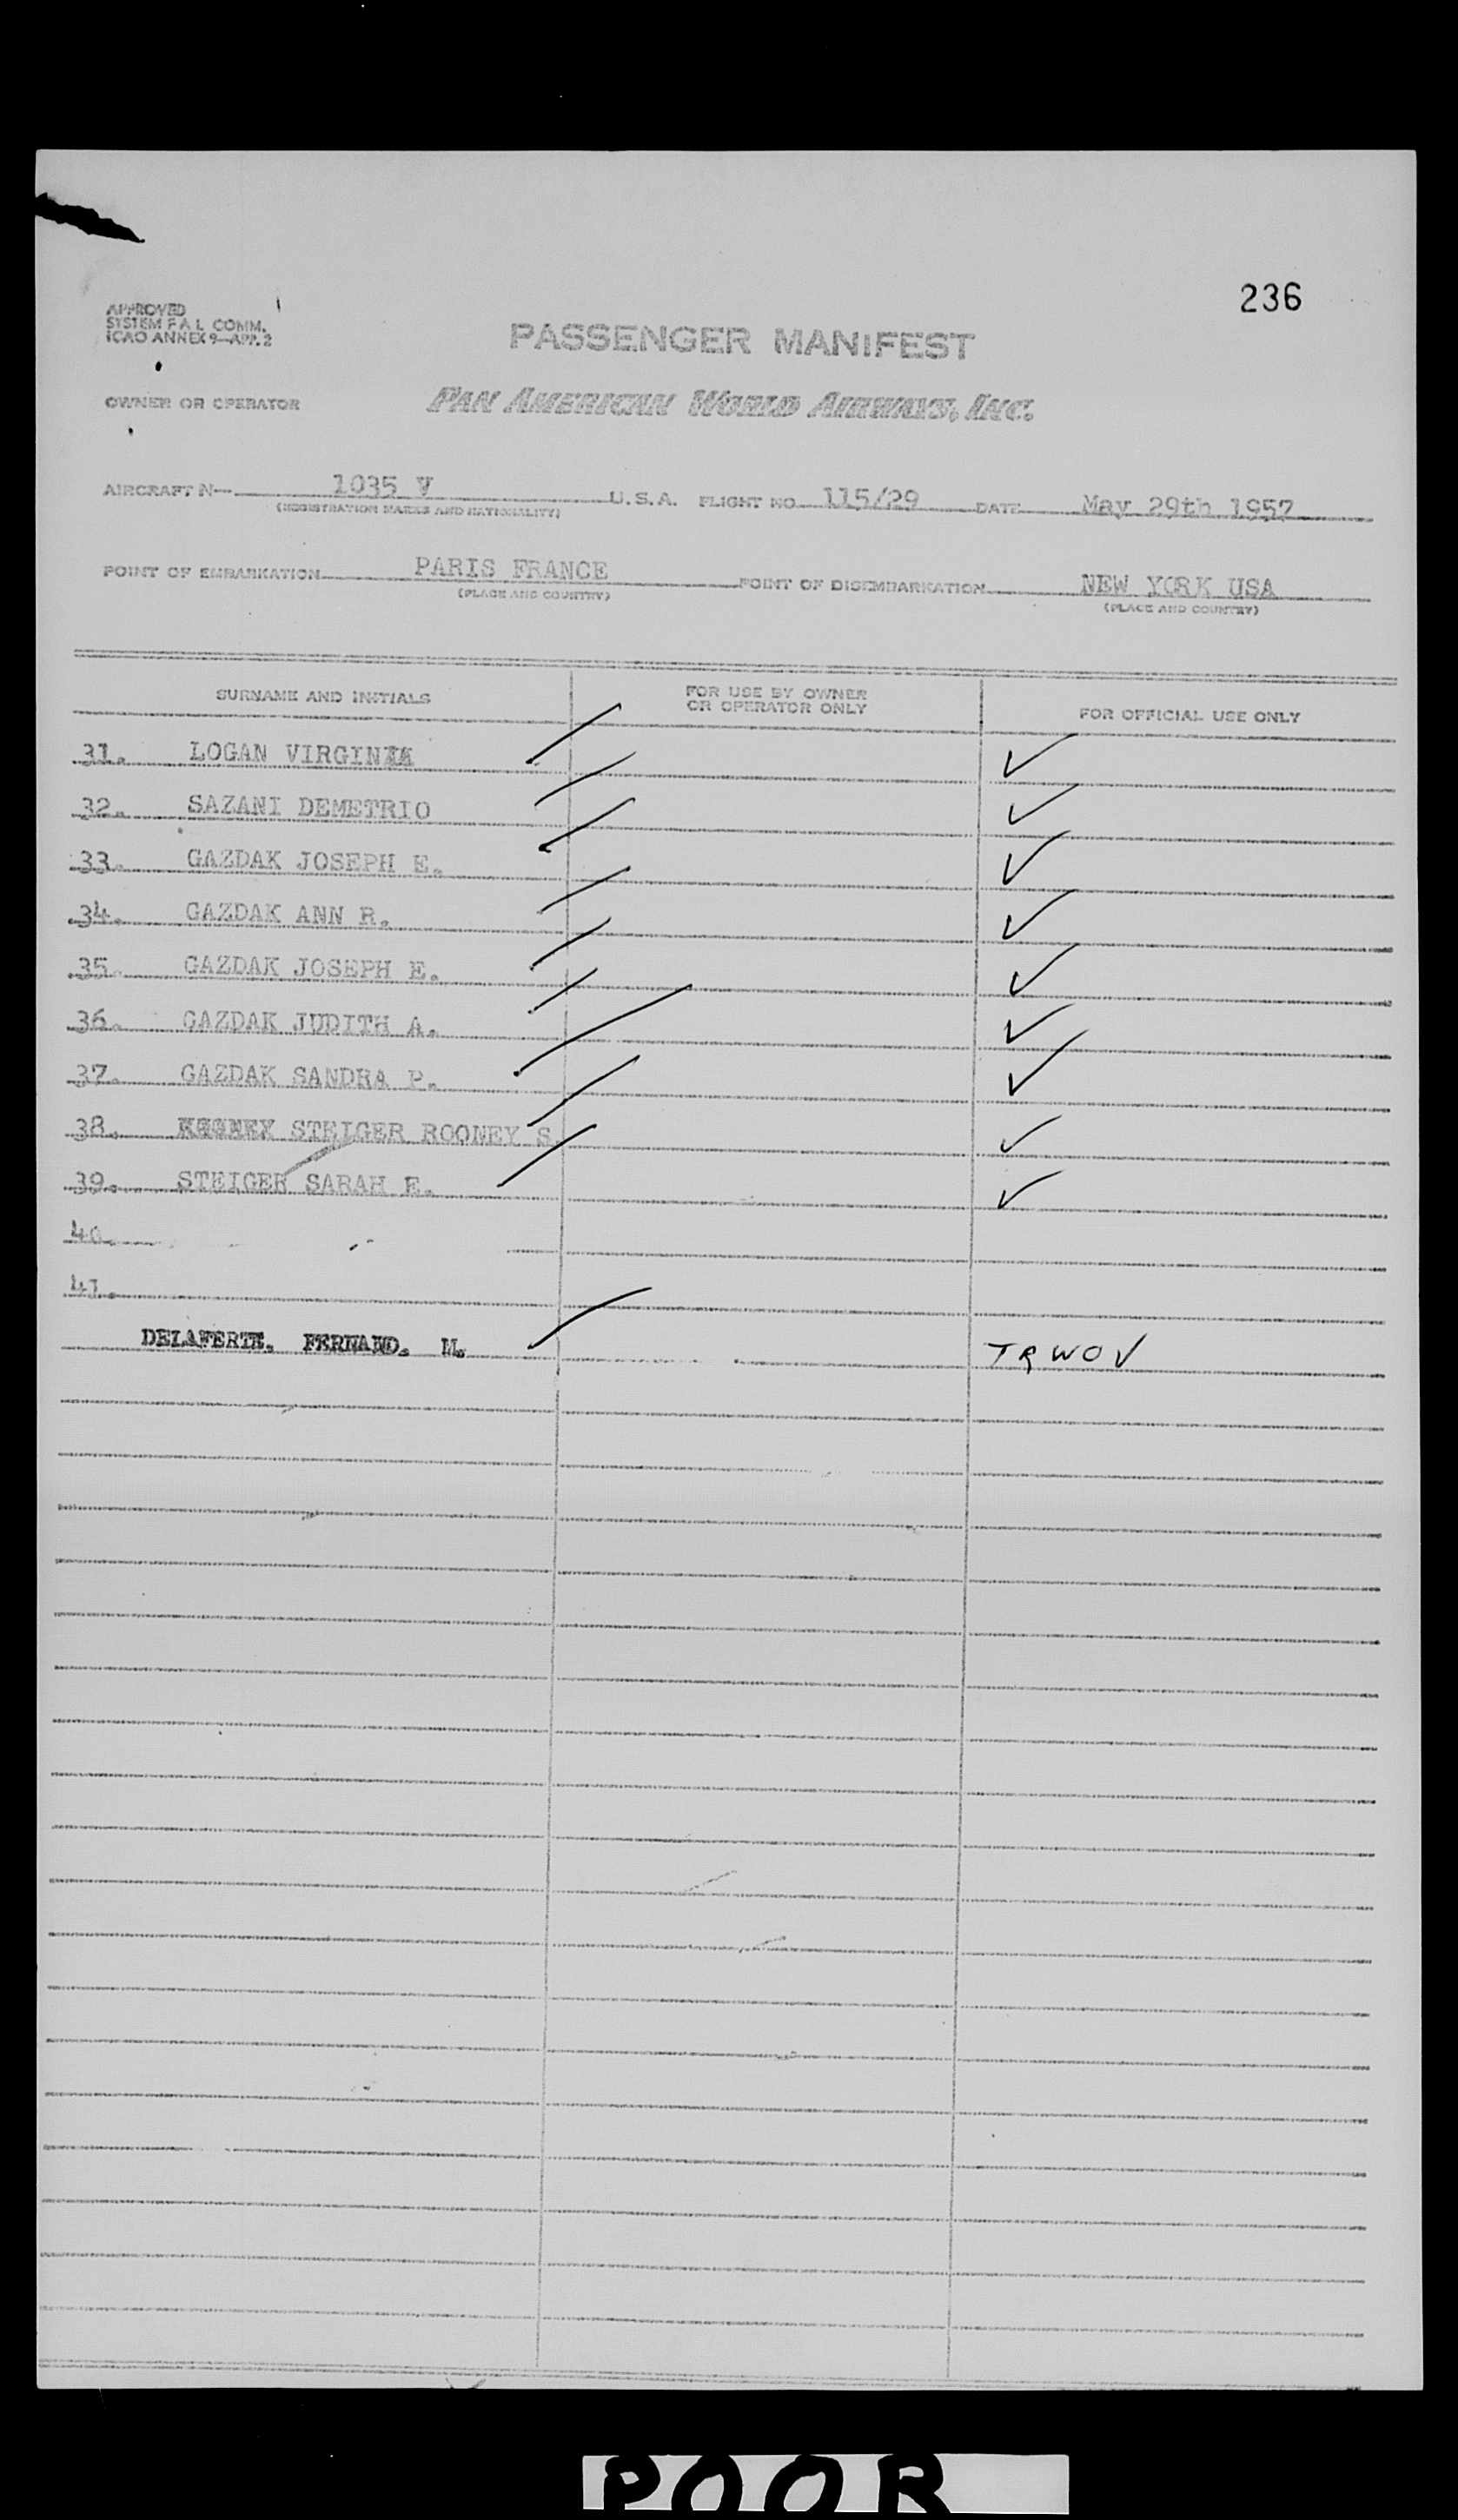 236
APPROVED
SYSTEM F A L COMM.
ICAO ANNEX 9—APP. 2
PASSENGER MANIFEST
OWNER OR OPERATOR PAN AMERICAN WORLD AIRWAYS, INC.
AIRCRAFT N— 1035 V U.S.A. FLIGHT NO. 115/29 DATE May 29th 1957
(REGISTRATION MARKS AND NATIONALITY)
POINT OF EMBARKATION PARIS FRANCE POINT OF DISEMBARKATION NEW YORK USA
(PLACE AND COUNTRY) (PLACE AND COUNTRY)
SURNAME AND INITIALS FOR USE BY OWNER OR OPERATOR ONLY FOR OFFICIAL USE ONLY
31. LOGAN VIRGINIA ✓
32. SAZANI DEMETRIO ✓
33. GAZDAK JOSEPH E. ✓
34. GAZDAK ANN R. ✓
35. GAZDAK JOSEPH E. ✓
36. GAZDAK JUDITH A. ✓
37. GAZDAK SANDRA P. ✓
38. STEIGER ROONEY S. ✓
39. STEIGER SARAH E. ✓
40.
41.
DELAFERTE. FERNAND. M. TRWOV
POOR